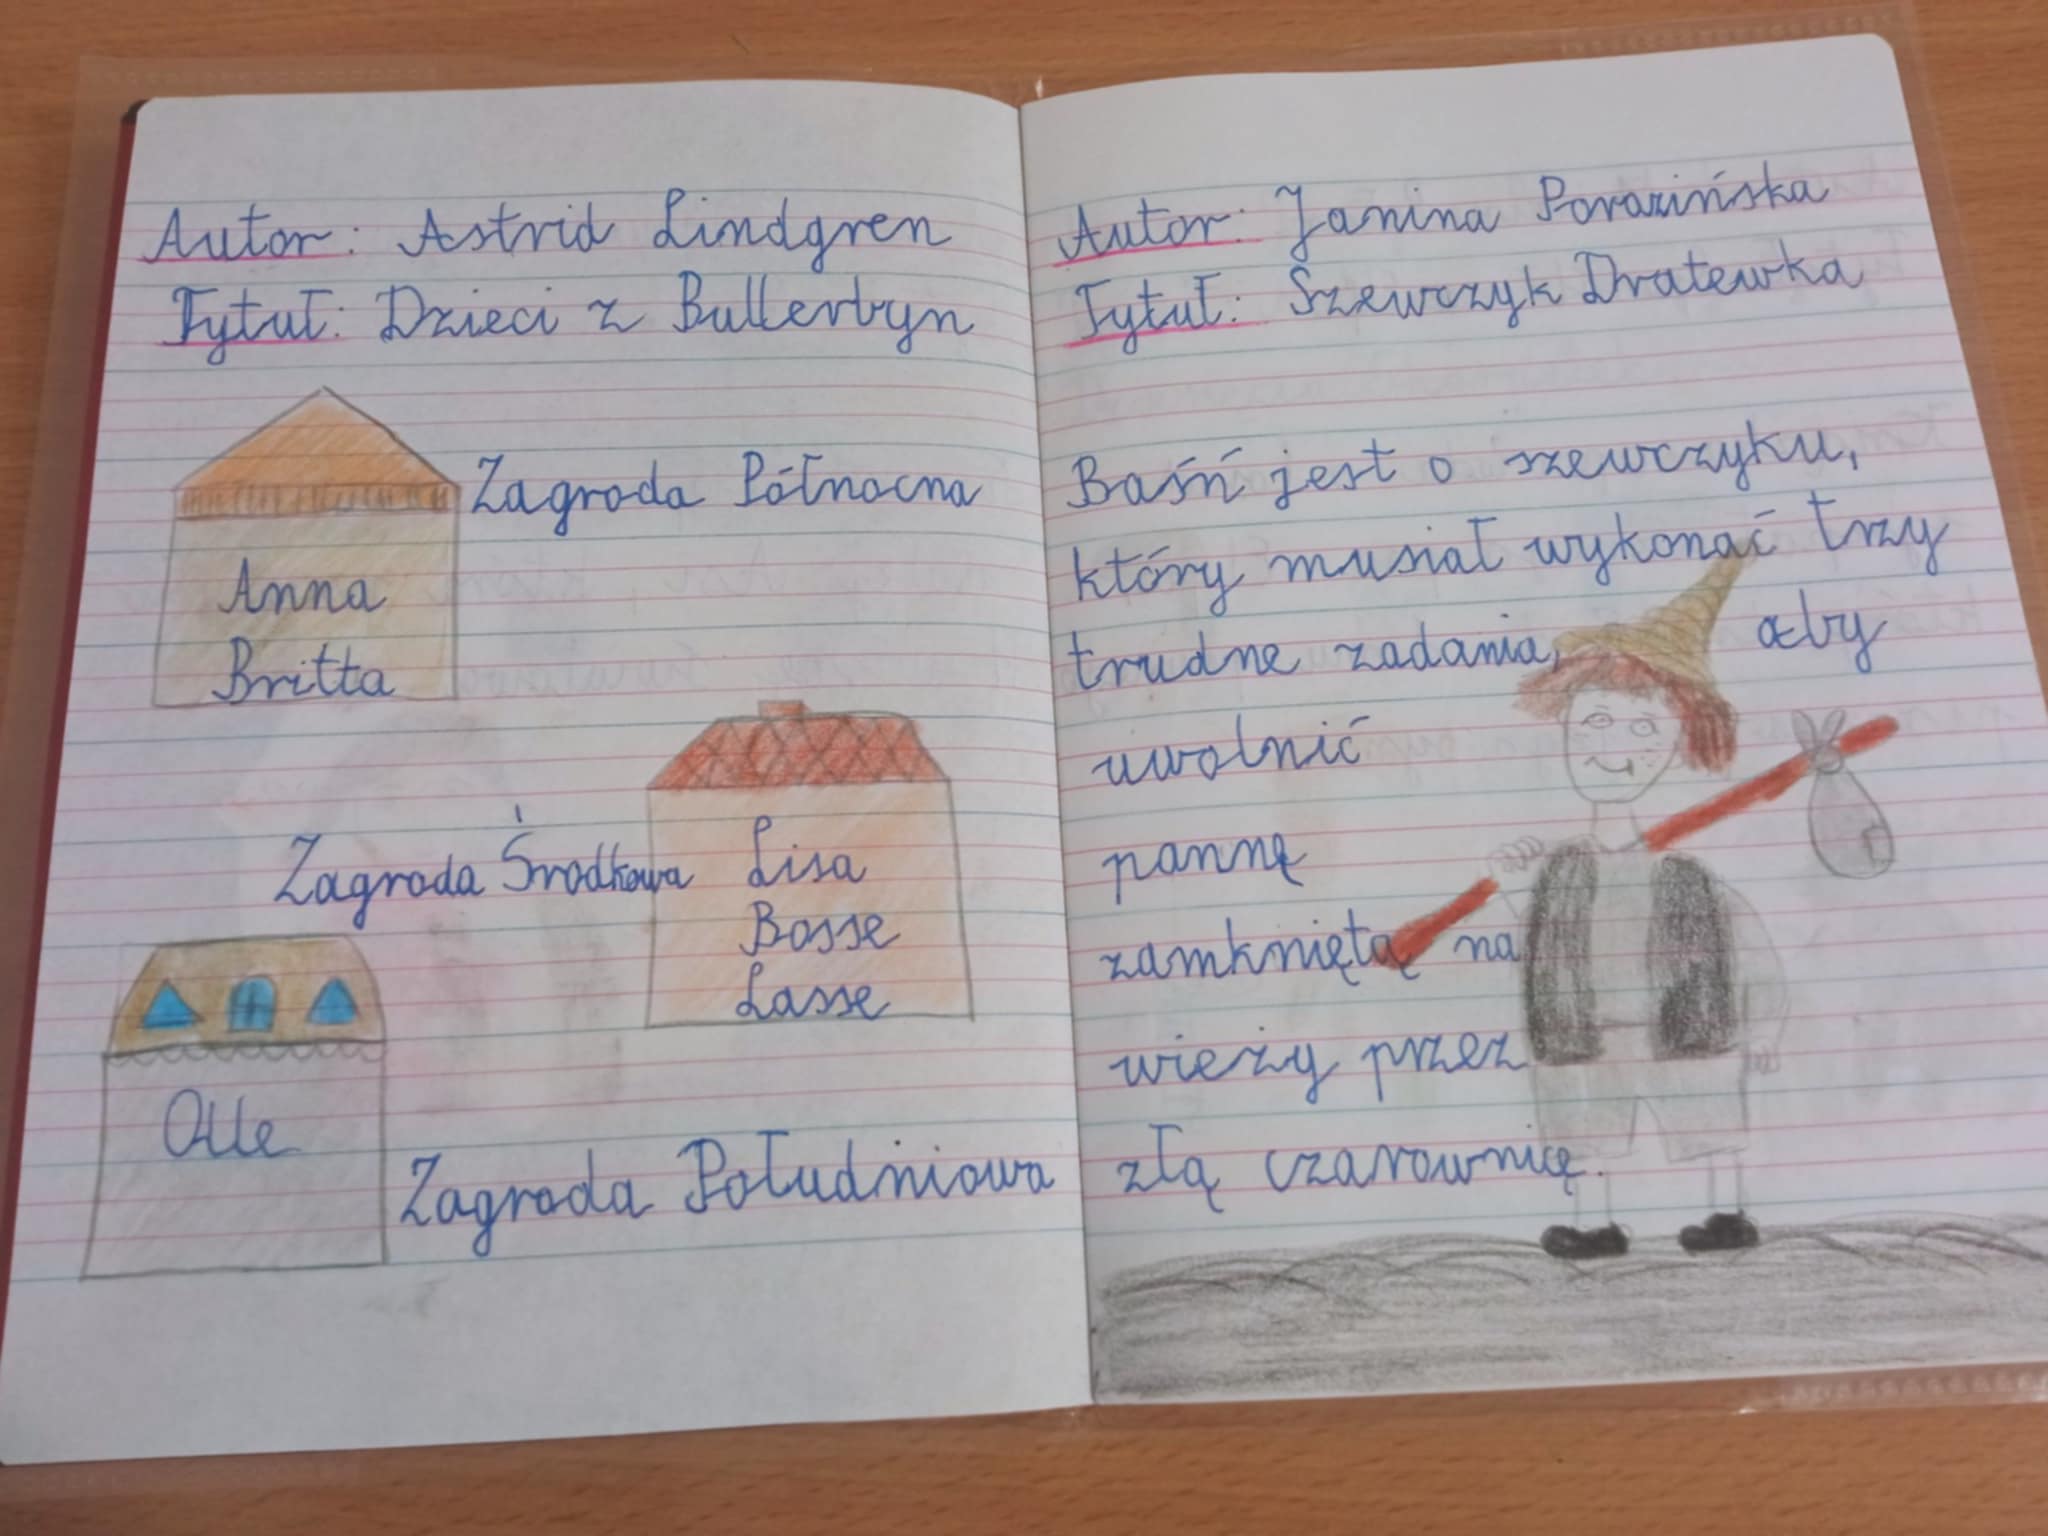 Autor: Astrid Lindgren
Tytuł: Dzieci z Bullerbyn
Zagroda Północna
Anna
Britta
Zagroda Środkowa
Lisa
Bosse
Lasse
Olle
Zagroda Południowa
Autor: Janina Porazińska
Tytuł: Szewczyk Dratewka
Baśń jest o szewczyku,
który musiał wykonać trzy
trudne zadania, aby
uwolnić
pannę
zamkniętą na
wieży przez
złą czarownicę.